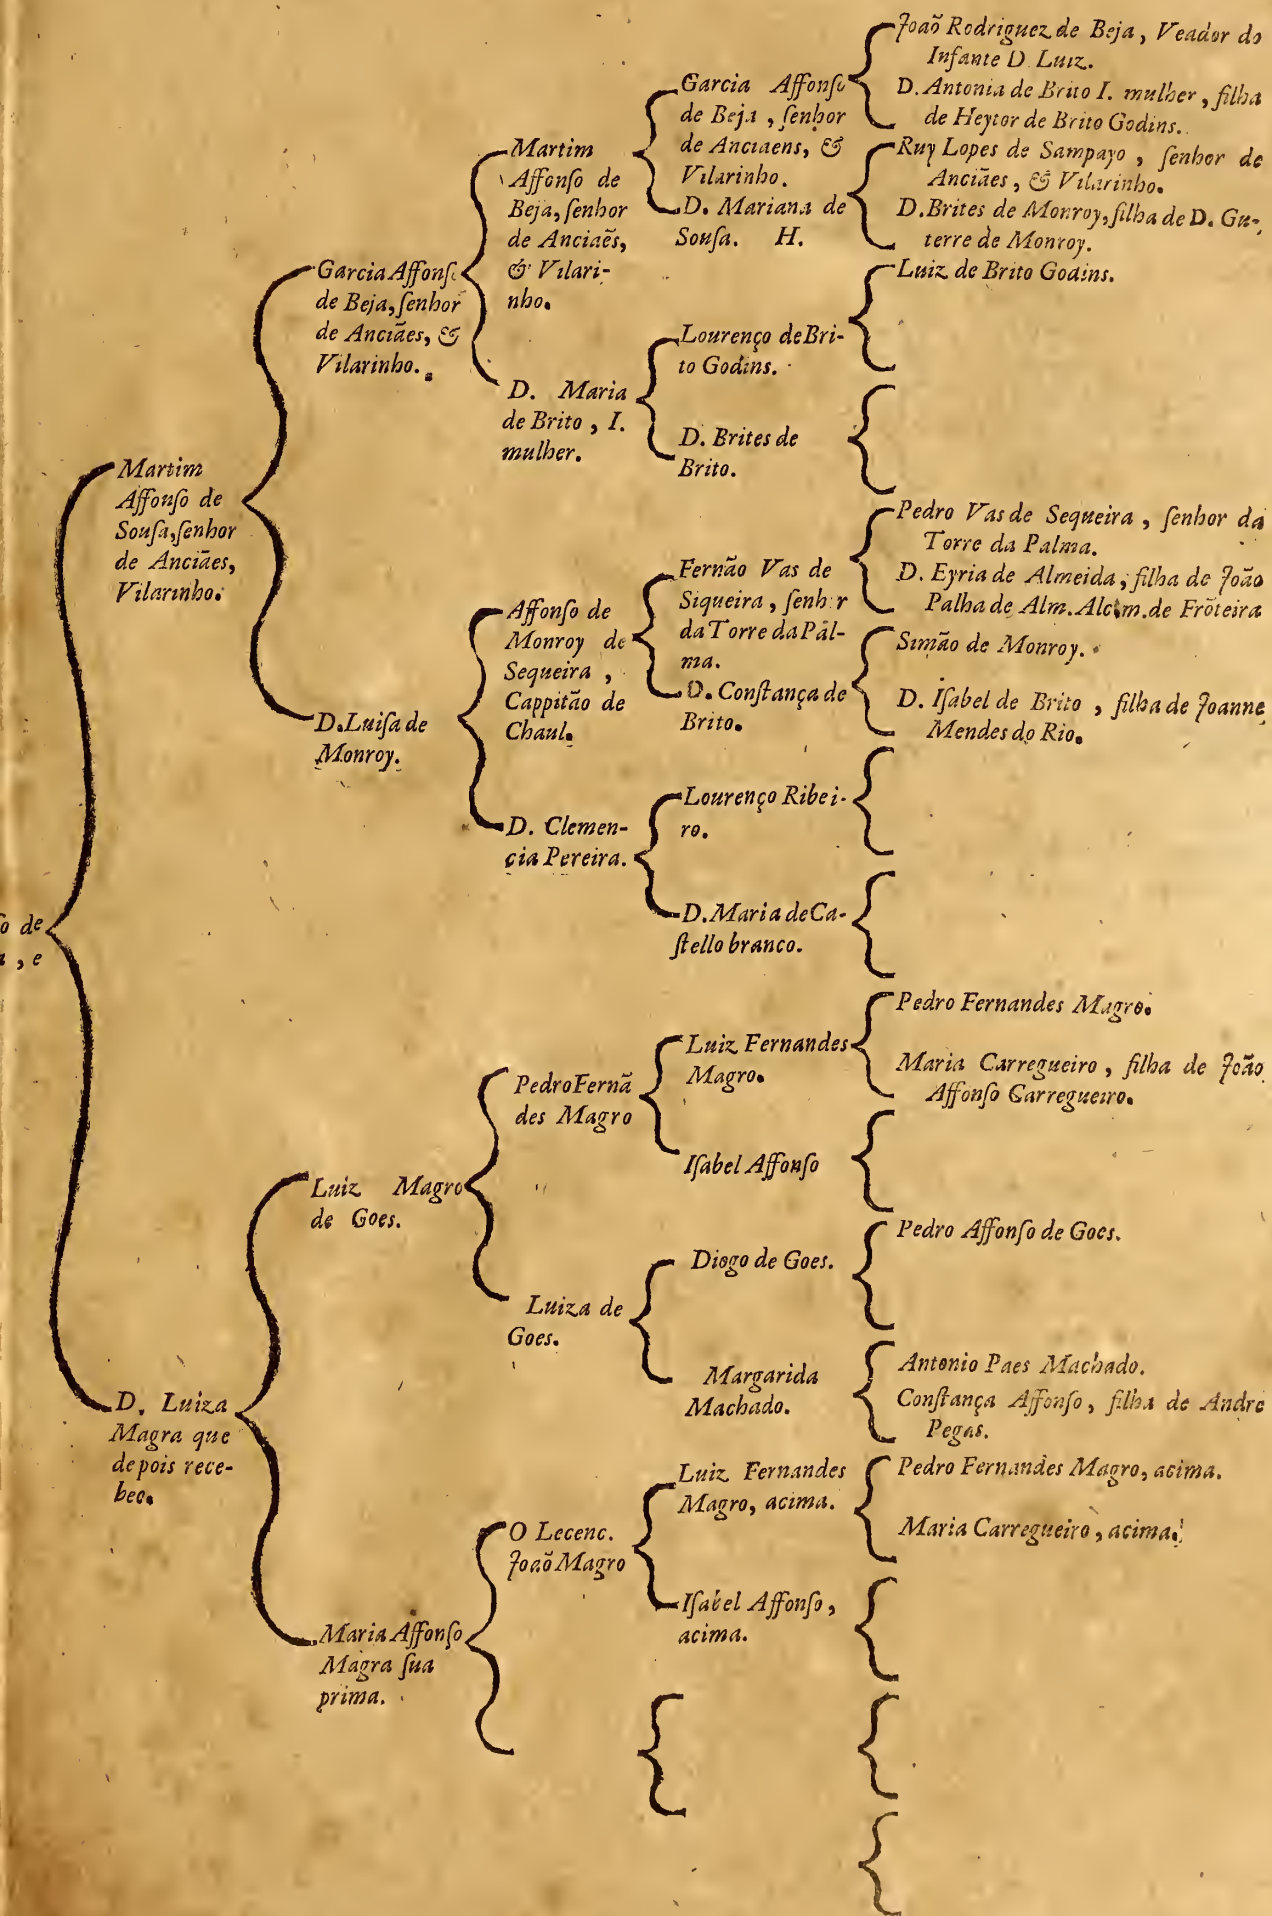 ſo de
, e
Martim
Affonſo de
Souſa,ſenhor
de Anciães,
Vilarinho.
D. Luiza
Magra que
depois rece-
beo.
Garcia Affonſo
de Beja,ſenhor
de Anciães, &
Vilarinho.
D.Luiſa de
Monroy.
Luiz Magro
de Goes.
Maria Affonſo
Magra ſua
prima.
Martim
Affonſo de
Beja,ſenhor
de Anciaẽs,
& Vilari-
nho.
D. Maria
de Brito , I.
mulher.
Affonſo de
Monroy de
Sequeira ,
Cappitão de
Chaul.
D. Clemen-
cia Pereira.
Pedro Fernã
des Magro
Luiza de
Goes.
O Lecenc.
Joaõ Magro
Garcia Affonſo
de Beja , ſenhor
de Anciaens, &
Vilarinho.
D. Mariana de
Souſa. H.
Lourenço de Bri-
to Godins.
D. Brites de
Brito.
Fernão Vas de
Siqueira , ſenhor
da Torre da Pal-
ma.
D. Conſtança de
Brito.
Lourenço Ribei-
ro.
D. Maria de Ca-
ſtello branco.
Luiz Fernandes
Magro.
Iſabel Affonſo
Diogo de Goes.
Margarida
Machado.
Luiz Fernandes
Magro, acima.
Iſabel Affonſo,
acima.
Joaõ Rodriguez de Beja , Veador do
Infante D. Luiz.
D. Antonia de Brito I. mulher , filha
de Heytor de Brito Godins.
Ruy Lopes de Sampayo , ſenhor de
Anciães , & Vilarinho.
D.Brites de Monroy,filha de D. Gu-
terre de Monroy.
Luiz de Brito Godins.
Pedro Vas de Sequeira , ſenhor da
Torre da Palma.
D. Eyria de Almeida , filha de João
Palha de Alm. Alcim. de Frõteira
Simão de Monroy.
D. Iſabel de Brito , filha de Joanne
Mendes do Rio.
Pedro Fernandes Magro.
Maria Carregueiro , filha de João
Affonſo Carregueiro.
Pedro Affonſo de Goes.
Antonio Paes Machado.
Conſtança Affonſo , filha de Andre
Pegas.
Pedro Fernandes Magro, acima.
Maria Carregueiro , acima.